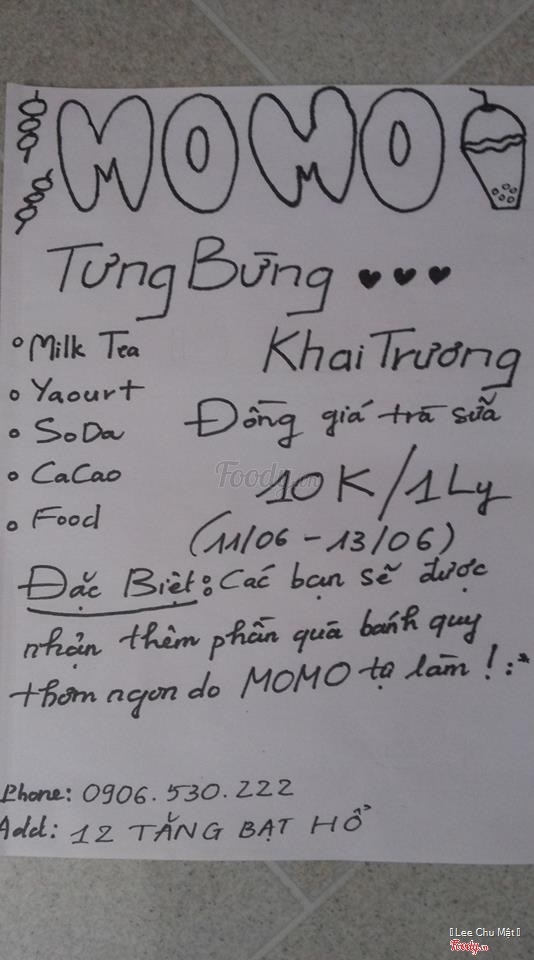 MOMO
Tưng Bừng ♥ ♥ ♥
Khai Trương
• Milk Tea
• Yaourt
• SoDa
• CaCao
• Food
Đồng giá trà sữa
10K/1Ly
(11/06 - 13/06)
Đặc Biệt: Các bạn sẽ được
nhận thêm phần quà bánh quy
thơm ngon do MOMO tự làm ! :*
Phone: 0906.530.222
Add: 12 TĂNG BẠT HỔ
Foody.vn
Lee Chu Mật
Foody.vn